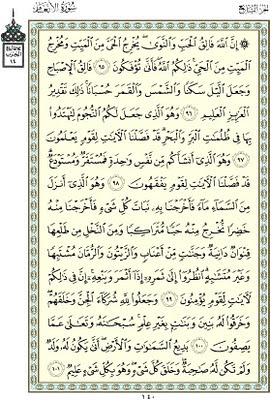 الجزء السابع
سورة الأنعام
۞ إِنَّ ٱللَّهَ فَالِقُ ٱلْحَبِّ وَٱلنَّوَىٰ يُخْرِجُ ٱلْحَيَّ مِنَ ٱلْمَيِّتِ وَمُخْرِجُ
ٱلْمَيِّتِ مِنَ ٱلْحَيِّ ذَٰلِكُمُ ٱللَّهُ فَأَنَّىٰ تُؤْفَكُونَ ٩٥ فَالِقُ ٱلْإِصْبَاحِ
وَجَعَلَ ٱلَّيْلَ سَكَنًا وَٱلشَّمْسَ وَٱلْقَمَرَ حُسْبَانًا ذَٰلِكَ تَقْدِيرُ
ٱلْعَزِيزِ ٱلْعَلِيمِ ٩٦ وَهُوَ ٱلَّذِى جَعَلَ لَكُمُ ٱلنُّجُومَ لِتَهْتَدُوا۟
بِهَا فِى ظُلُمَٰتِ ٱلْبَرِّ وَٱلْبَحْرِ قَدْ فَصَّلْنَا ٱلْءَايَٰتِ لِقَوْمٍ يَعْلَمُونَ
٩٧ وَهُوَ ٱلَّذِىٓ أَنشَأَكُم مِّن نَّفْسٍ وَٰحِدَةٍ فَمُسْتَقَرٌّ وَمُسْتَوْدَعٌ
قَدْ فَصَّلْنَا ٱلْءَايَٰتِ لِقَوْمٍ يَفْقَهُونَ ٩٨ وَهُوَ ٱلَّذِىٓ أَنزَلَ
مِنَ ٱلسَّمَآءِ مَآءً فَأَخْرَجْنَا بِهِۦ نَبَاتَ كُلِّ شَىْءٍ فَأَخْرَجْنَا مِنْهُ
خَضِرًا نُّخْرِجُ مِنْهُ حَبًّا مُّتَرَاكِبًا وَمِنَ ٱلنَّخْلِ مِن طَلْعِهَا
قِنْوَانٌ دَانِيَةٌ وَجَنَّٰتٍ مِّنْ أَعْنَابٍ وَٱلزَّيْتُونَ وَٱلرُّمَّانَ مُشْتَبِهًا
وَغَيْرَ مُتَشَٰبِهٍ ٱنظُرُوٓا۟ إِلَىٰ ثَمَرِهِۦٓ إِذَآ أَثْمَرَ وَيَنْعِهِۦٓ إِنَّ فِى ذَٰلِكُمْ
لَءَايَٰتٍ لِّقَوْمٍ يُؤْمِنُونَ ٩٩ وَجَعَلُوا۟ لِلَّهِ شُرَكَآءَ ٱلْجِنَّ وَخَلَقَهُمْ
وَخَرَقُوا۟ لَهُۥ بَنِينَ وَبَنَٰتٍۭ بِغَيْرِ عِلْمٍ سُبْحَٰنَهُۥ وَتَعَٰلَىٰ عَمَّا
يَصِفُونَ ١٠٠ بَدِيعُ ٱلسَّمَٰوَٰتِ وَٱلْأَرْضِ أَنَّىٰ يَكُونُ لَهُۥ وَلَدٌ
وَلَمْ تَكُن لَّهُۥ صَٰحِبَةٌ وَخَلَقَ كُلَّ شَىْءٍ وَهُوَ بِكُلِّ شَىْءٍ عَلِيمٌ ١٠١
١٤٠